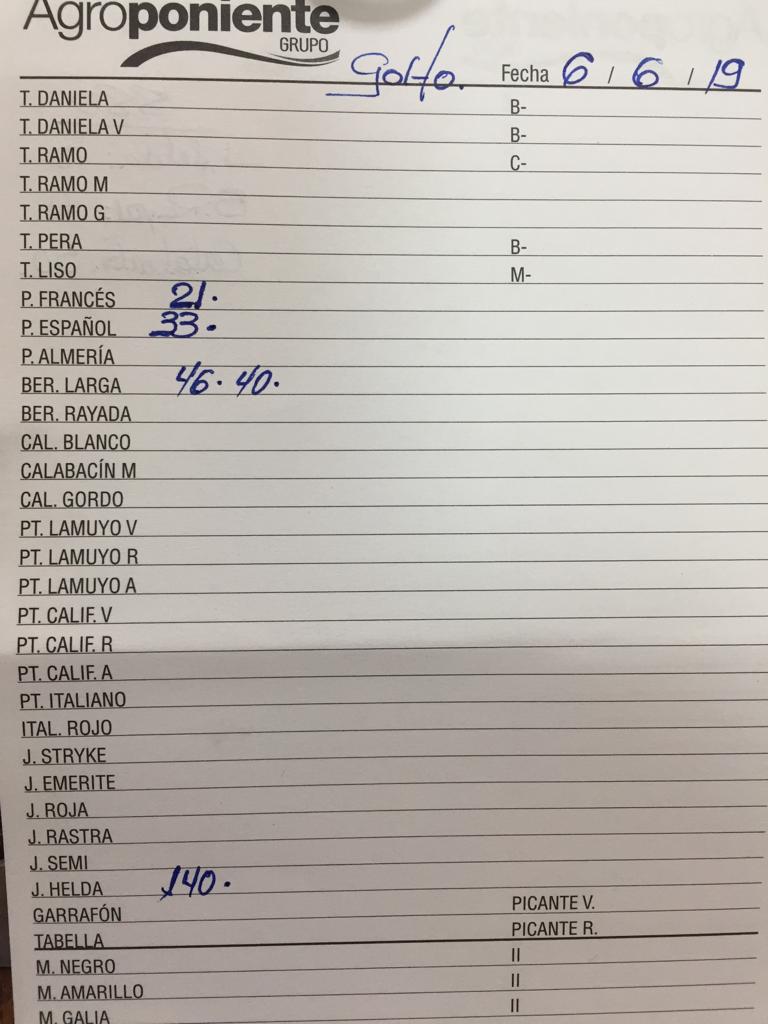 Agroponiente
GRUPO
Golfo. Fecha 6 / 6 / 19
T. DANIELA B-
T. DANIELA V B-
T. RAMO C-
T. RAMO M
T. RAMO G
T. PERA B-
T. LISO M-
P. FRANCÉS 21.
P. ESPAÑOL 33.
P. ALMERÍA
BER. LARGA 46. 40.
BER. RAYADA
CAL. BLANCO
CALABACÍN M
CAL. GORDO
PT. LAMUYO V
PT. LAMUYO R
PT. LAMUYO A
PT. CALIF. V
PT. CALIF. R
PT. CALIF. A
PT. ITALIANO
ITAL. ROJO
J. STRYKE
J. EMERITE
J. ROJA
J. RASTRA
J. SEMI
J. HELDA 140.
GARRAFÓN PICANTE V.
TABELLA PICANTE R.
M. NEGRO II
M. AMARILLO II
M. GALIA II